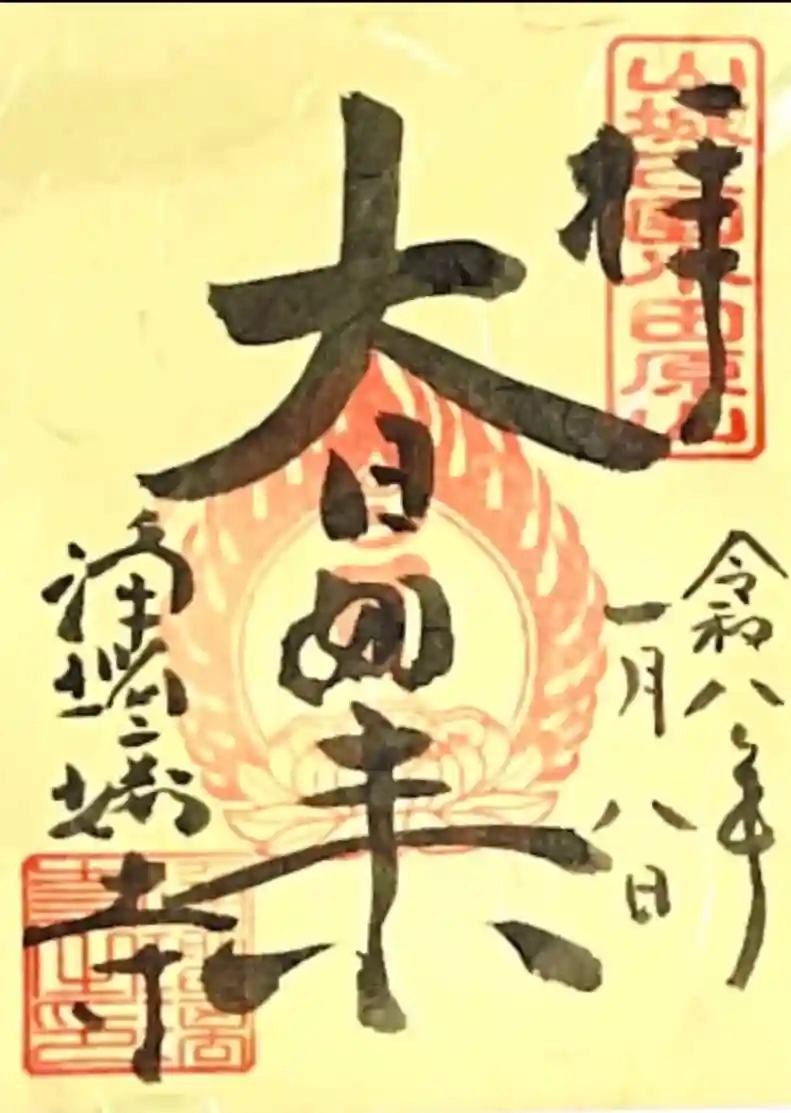 山城之国小田原山
拝
令和八年
一月八日
大日如来
浄瑠璃寺